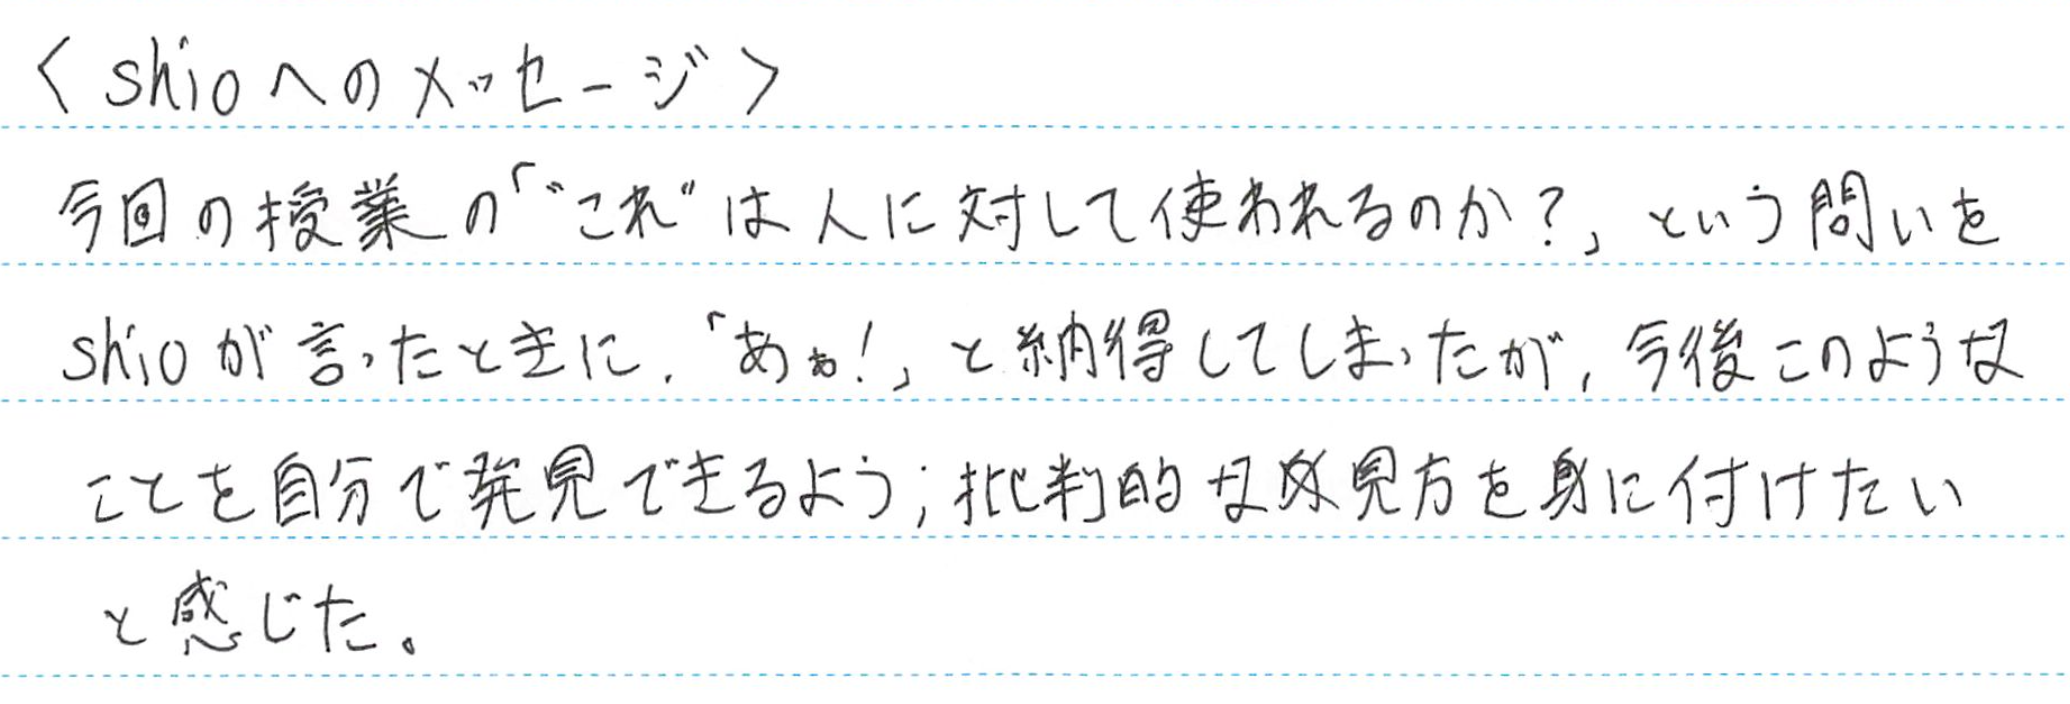 〈shioへのメッセージ〉
今回の授業の「“これ”は人に対して使われるのか？」という問いを
shioが言ったときに、「あぁ！」と納得してしまったが、今後このような
ことを自分で発見できるよう、批判的な見方を身に付けたい
と感じた。